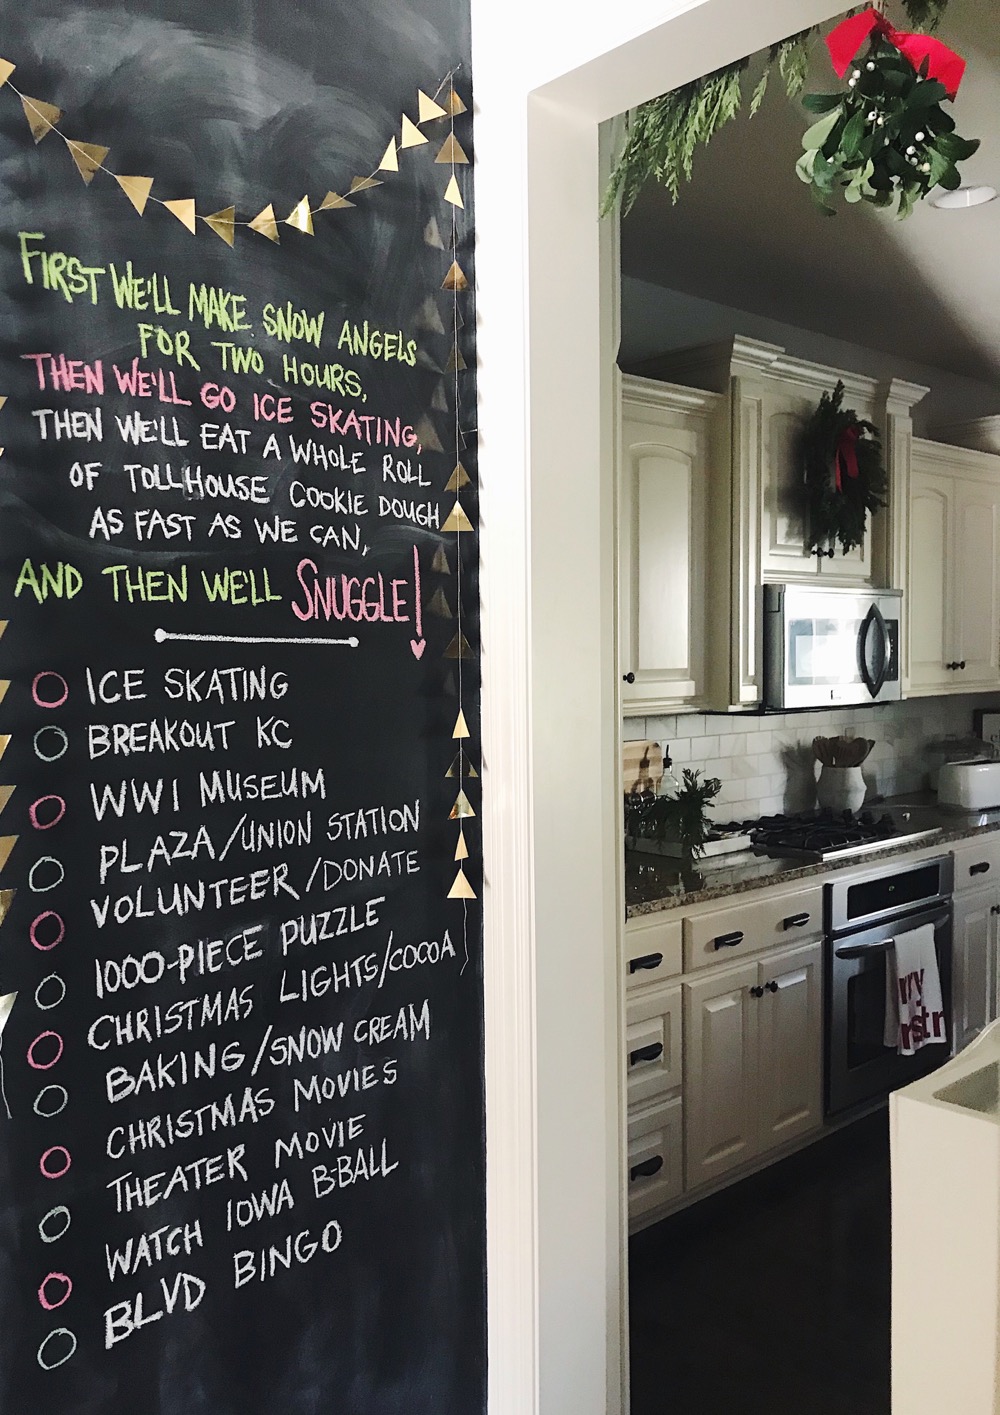 FIRST WE'LL MAKE SNOW ANGELS
FOR TWO HOURS,
THEN WE'LL GO ICE SKATING,
THEN WE'LL EAT A WHOLE ROLL
OF TOLLHOUSE COOKIE DOUGH
AS FAST AS WE CAN,
AND THEN WE'LL SNUGGLE!
ICE SKATING
BREAKOUT KC
WWI MUSEUM
PLAZA/UNION STATION
VOLUNTEER/DONATE
1000-PIECE PUZZLE
CHRISTMAS LIGHTS/COCOA
BAKING/SNOW CREAM
CHRISTMAS MOVIES
THEATER MOVIE
WATCH IOWA B-BALL
BLVD BINGO